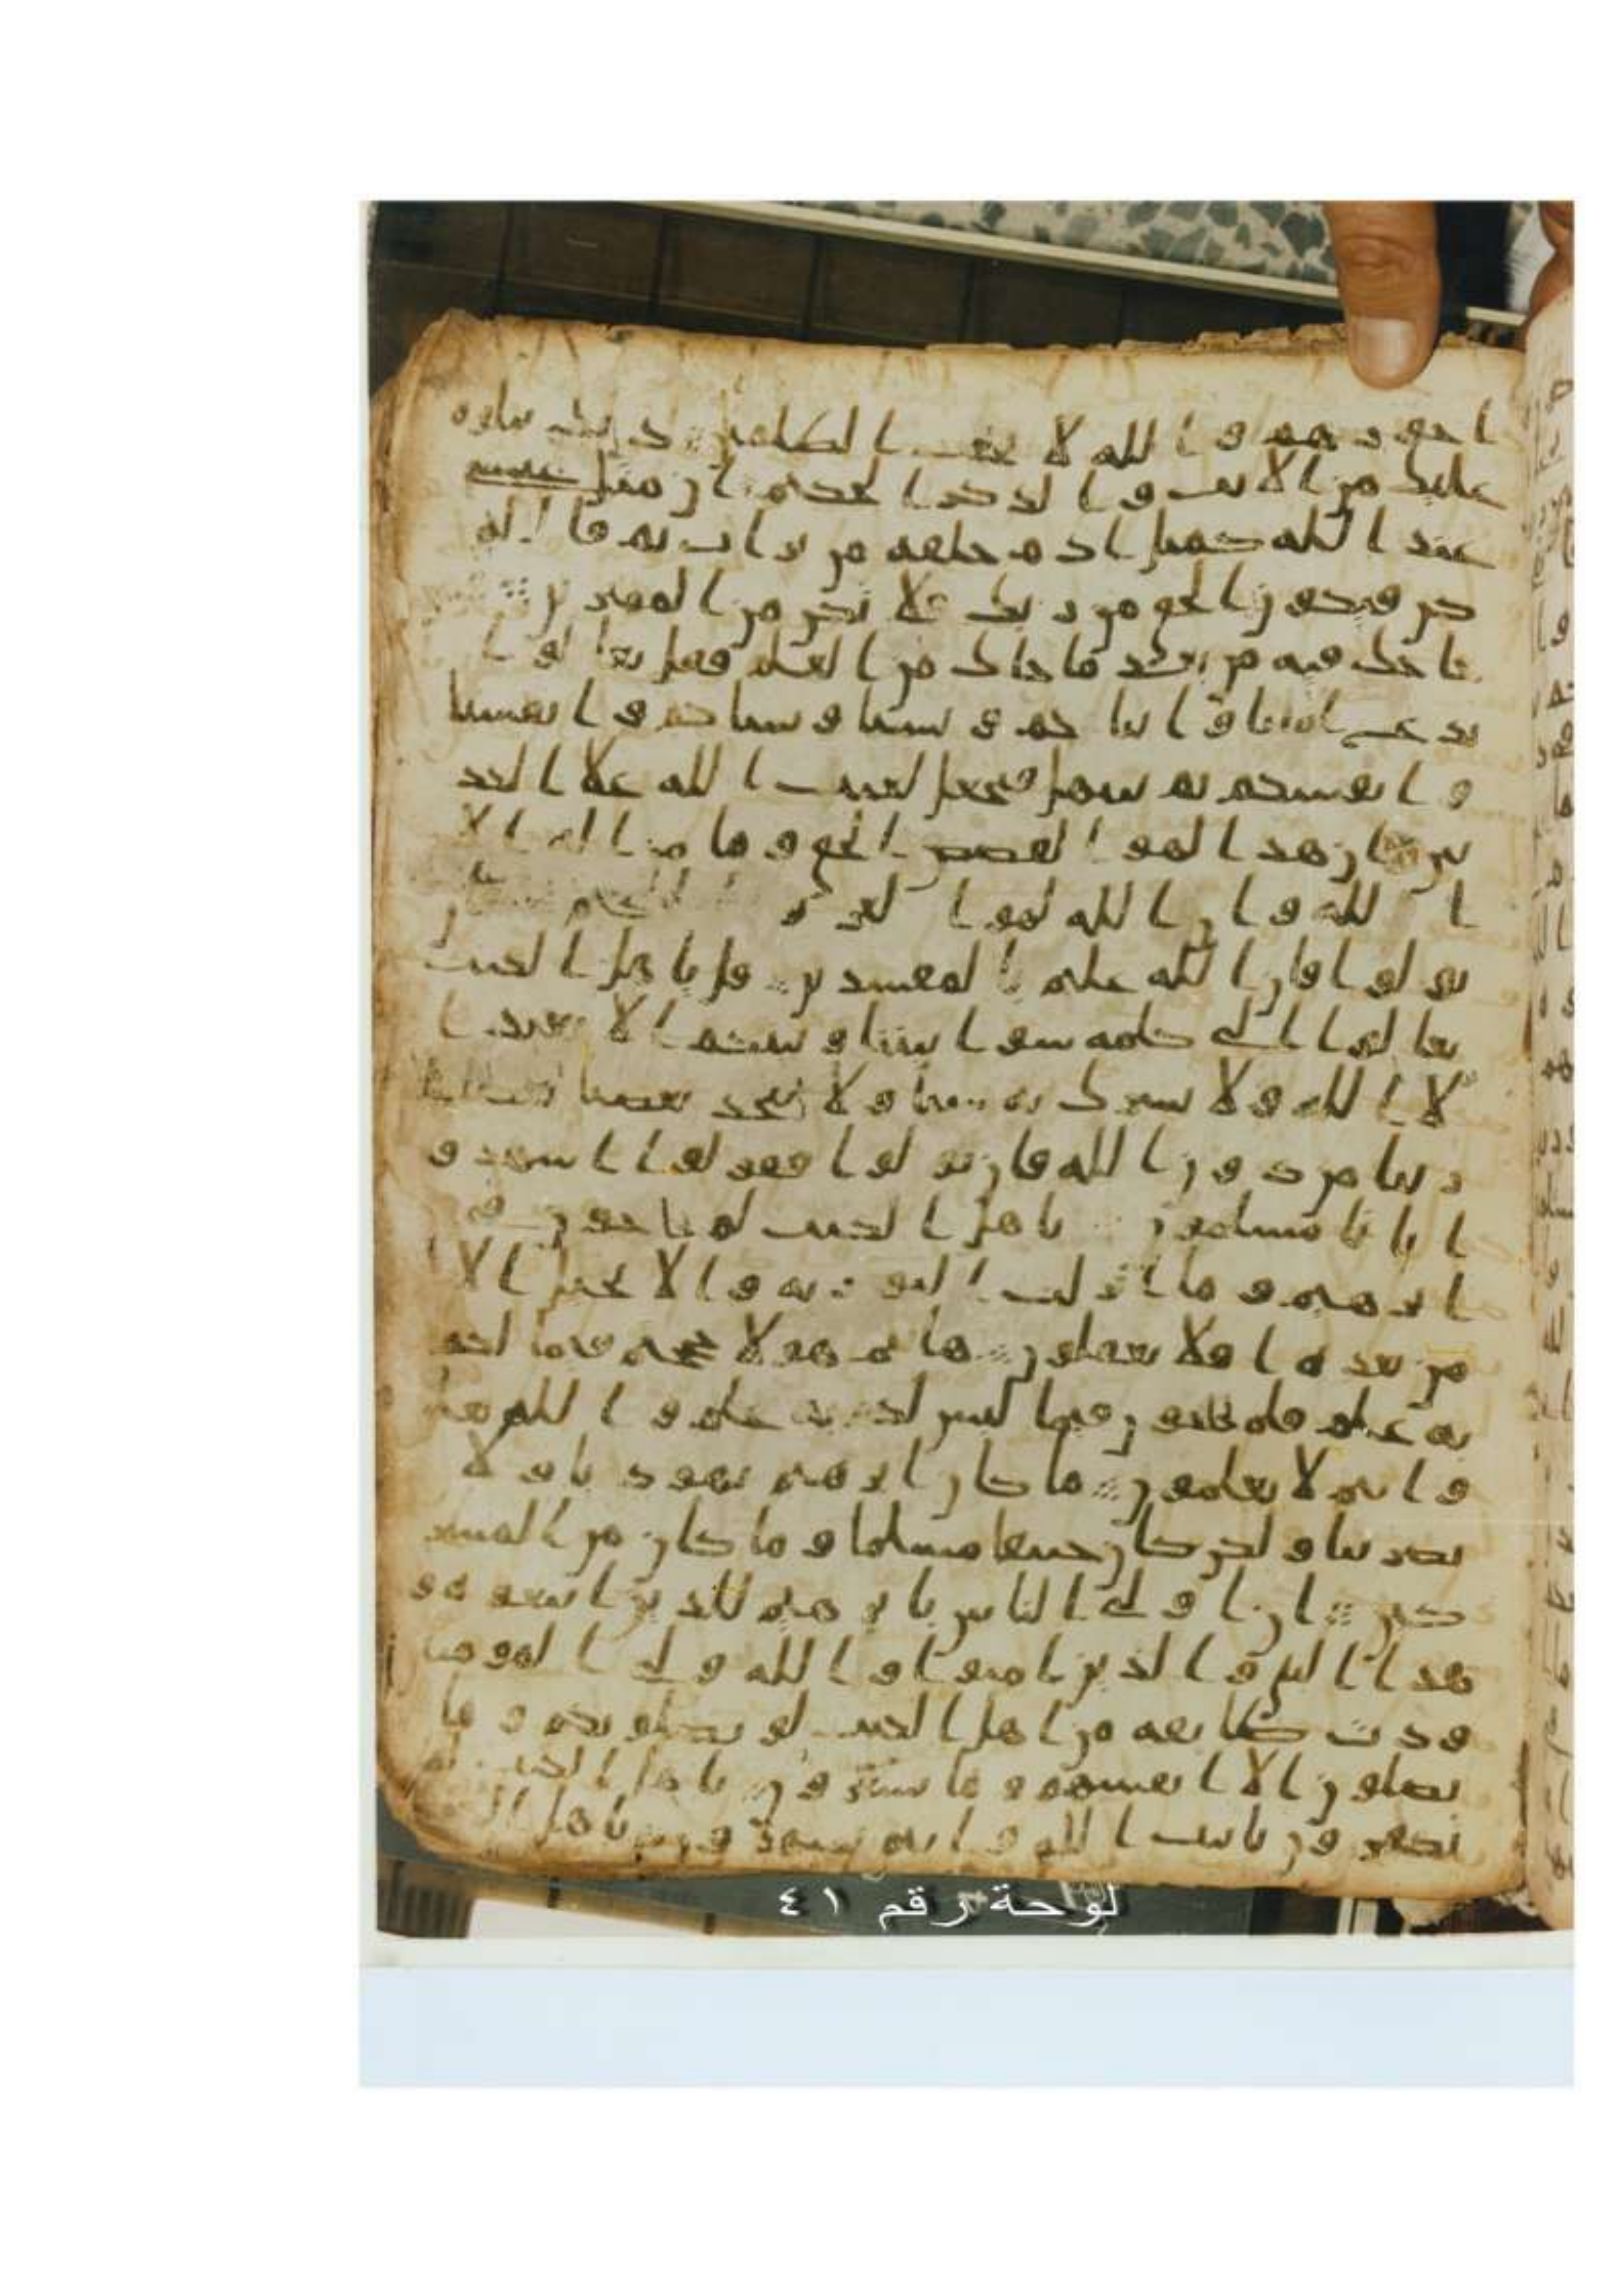 ا جورهم و الله لا يحب الظلمين ذلك نتلوه
عليك من الايت و الذكر الحكيم ان مثل عيسى
عند الله كمثل ادم خلقه من تراب ثم قال له
كن فيكون الحق من ربك فلا تكن من الممترين
حاجك فيه من بعد ما جاك من العلم فقل تعالوا
ندع ابنانا و ابناكم و نسنا و نساكم و انفسنا
و انفسكم ثم نبتهل فنجعل لعنت الله علا الكذ
بين ان هذا لهو القصص الحق و ما من اله الا
الله و ان الله لهو العزيز الحكيم
تولوا فان الله عليم بالمفسدين قل ياهل الكتب
تعالوا الى كلمه سوا بيننا و بينكم الا نعبد ا
لا الله و لا نشرك به شيا و لا يتخذ بعضنا بعضا
ربابا من دون الله فان تولوا فقولوا اشهدو
ا بانا مسلمون ياهل الكتب لم تحاجون في
ابرهيم و ما انزلت التوريه و الانجيل الا
من بعده افلا تعقلون هانتم هولا حججتم فيما لكم
به علم فلم تحاجون فيما ليس لكم به علم و الله يعلم
و انتم لا تعلمون ما كان ابرهيم يهوديا و لا
نصرنيا و لكن كان حنيفا مسلما و ما كان من المشر
كين ان اولى الناس بابرهيم للذين اتبعوه و
هذا النبي و الذين امنوا و الله ولي المومنين
ودت طايفه من اهل الكتب لو يضلونكم و ما
يضلون الا انفسهم و ما يشعرون ياهل الكتب لم
تكفرون بايت الله و انتم تشهدون ياهل الكتب
لوحة رقم ٤١